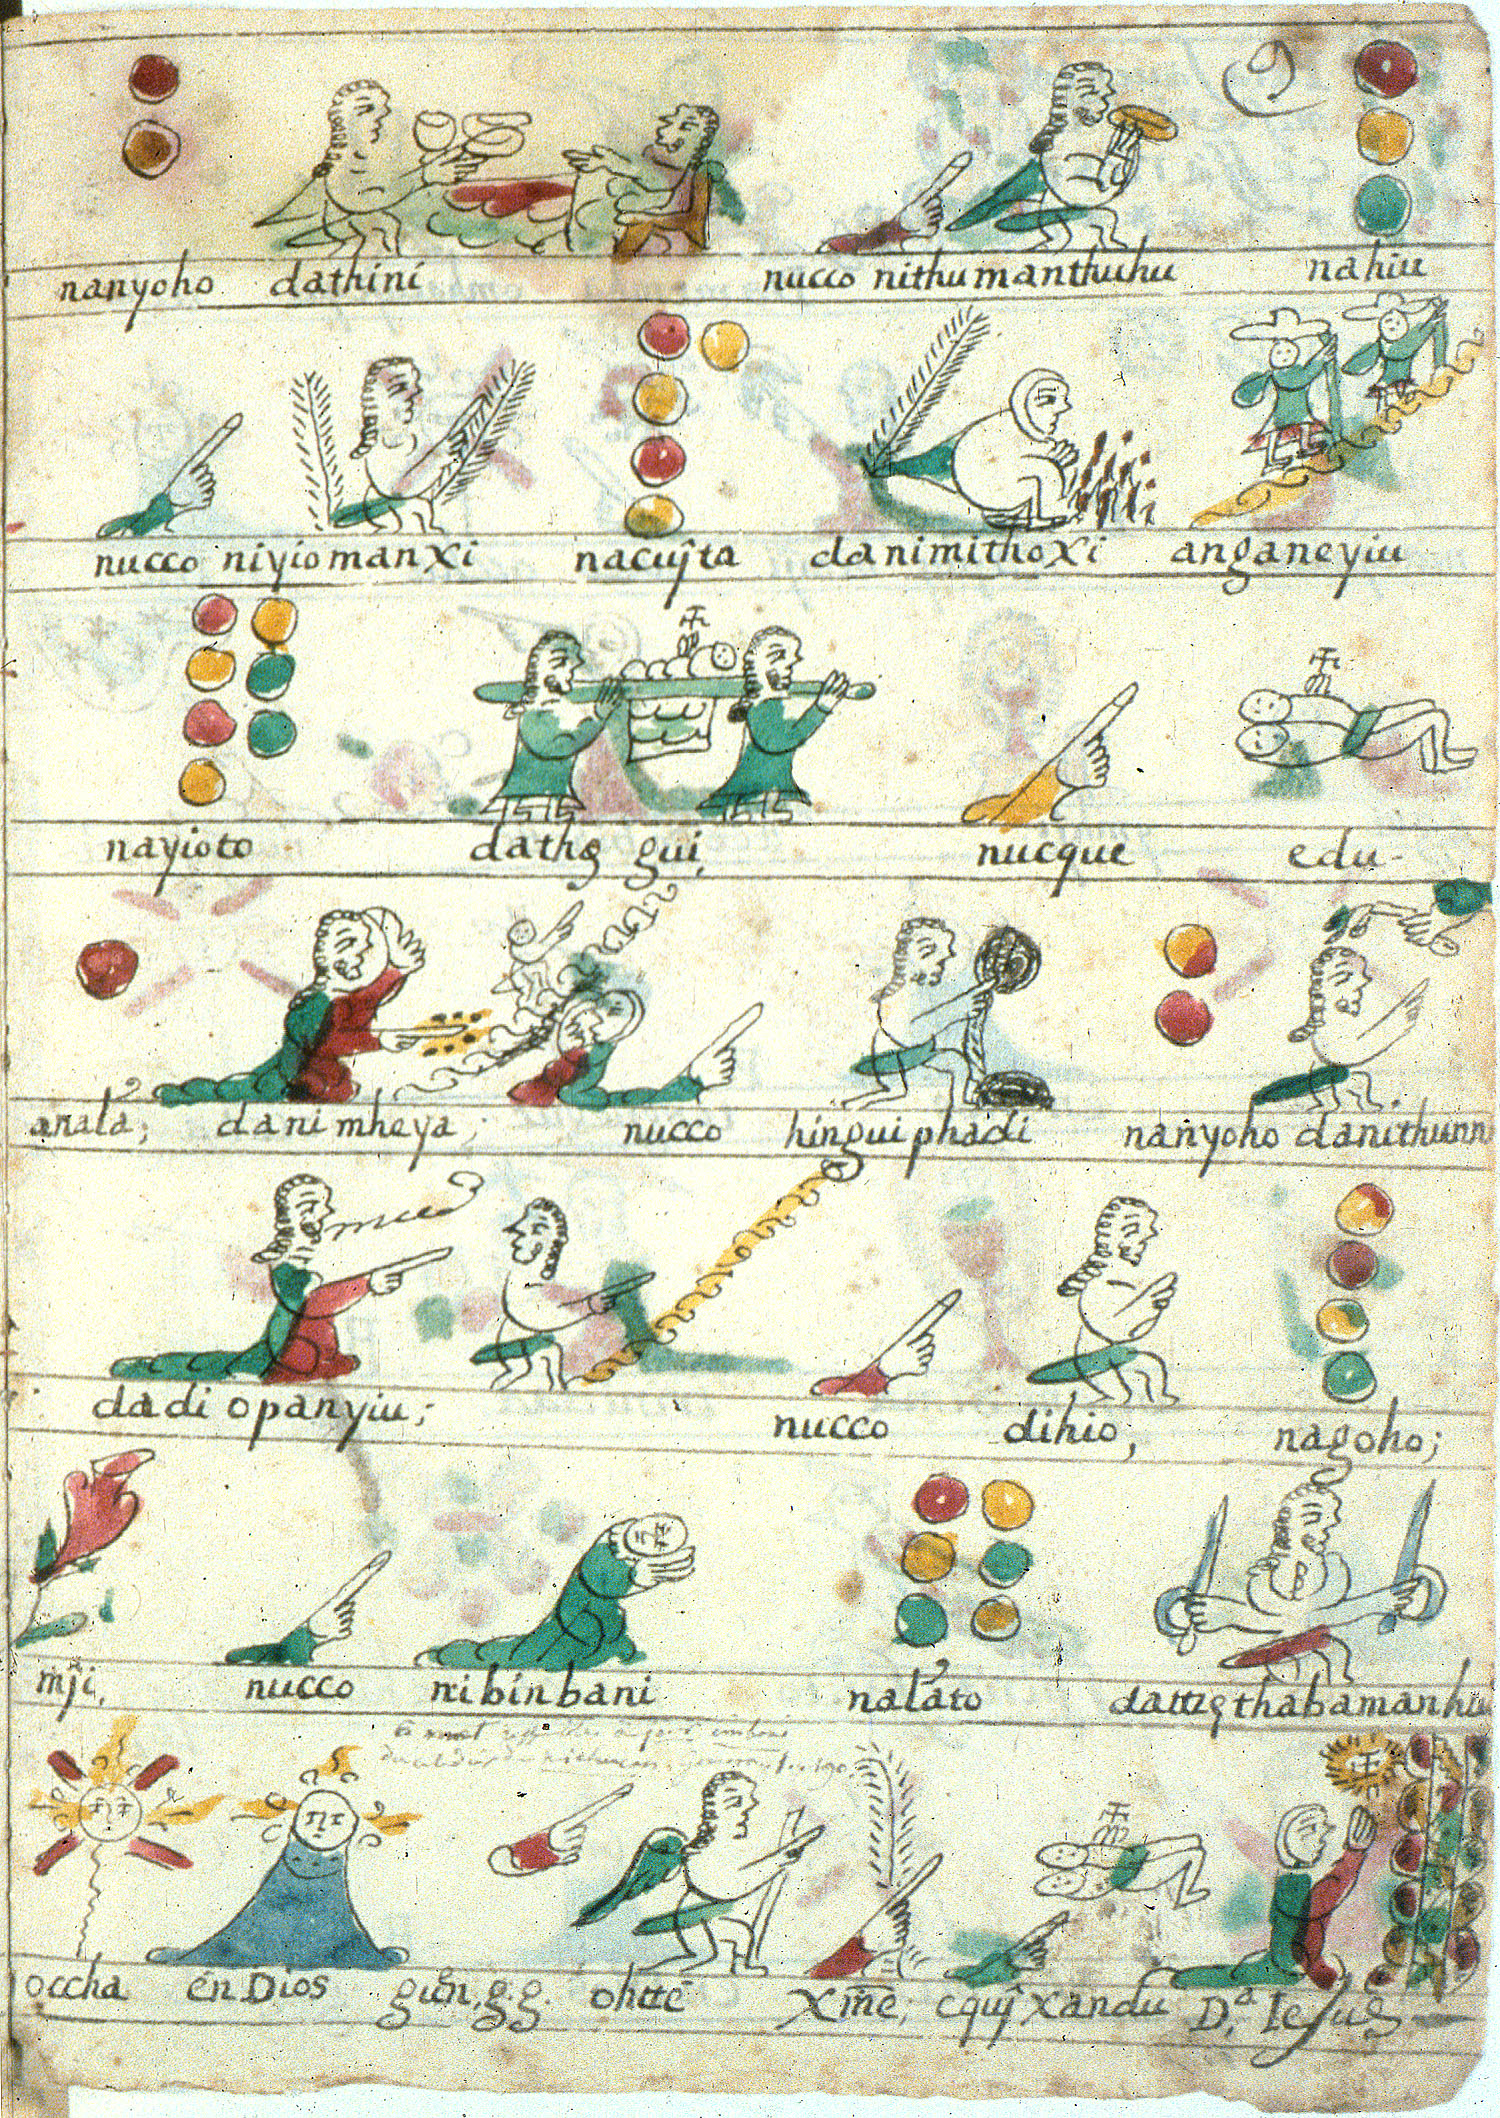 9
nanyoho dathini nucco nithumanthuhu nahiu
nucco niyiomanxi nacuĵta danimithoxi anganeyiu
nayioto dathę gui, nucque edu-
anala; danimheya; nucco hinguiphadi nanyoho danithunni
nucco
dadi opanyiu; nucco dihio, nagoho;
mĵi, nucco nibinbani nalato dattzęthabamanhu
occha én Dios giěn. g. g. ohttē Xm̄e, cquĵxandu D.ª Iesus